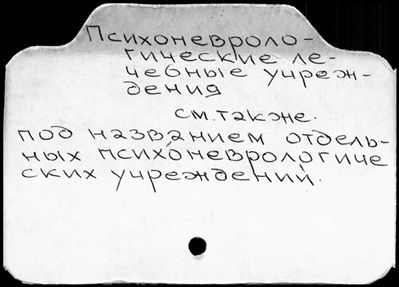 Психоневроло-
гические ле-
чебные учреж-
дения
см. также.
под названием отдель-
ных психоневрологиче
ских учреждений.